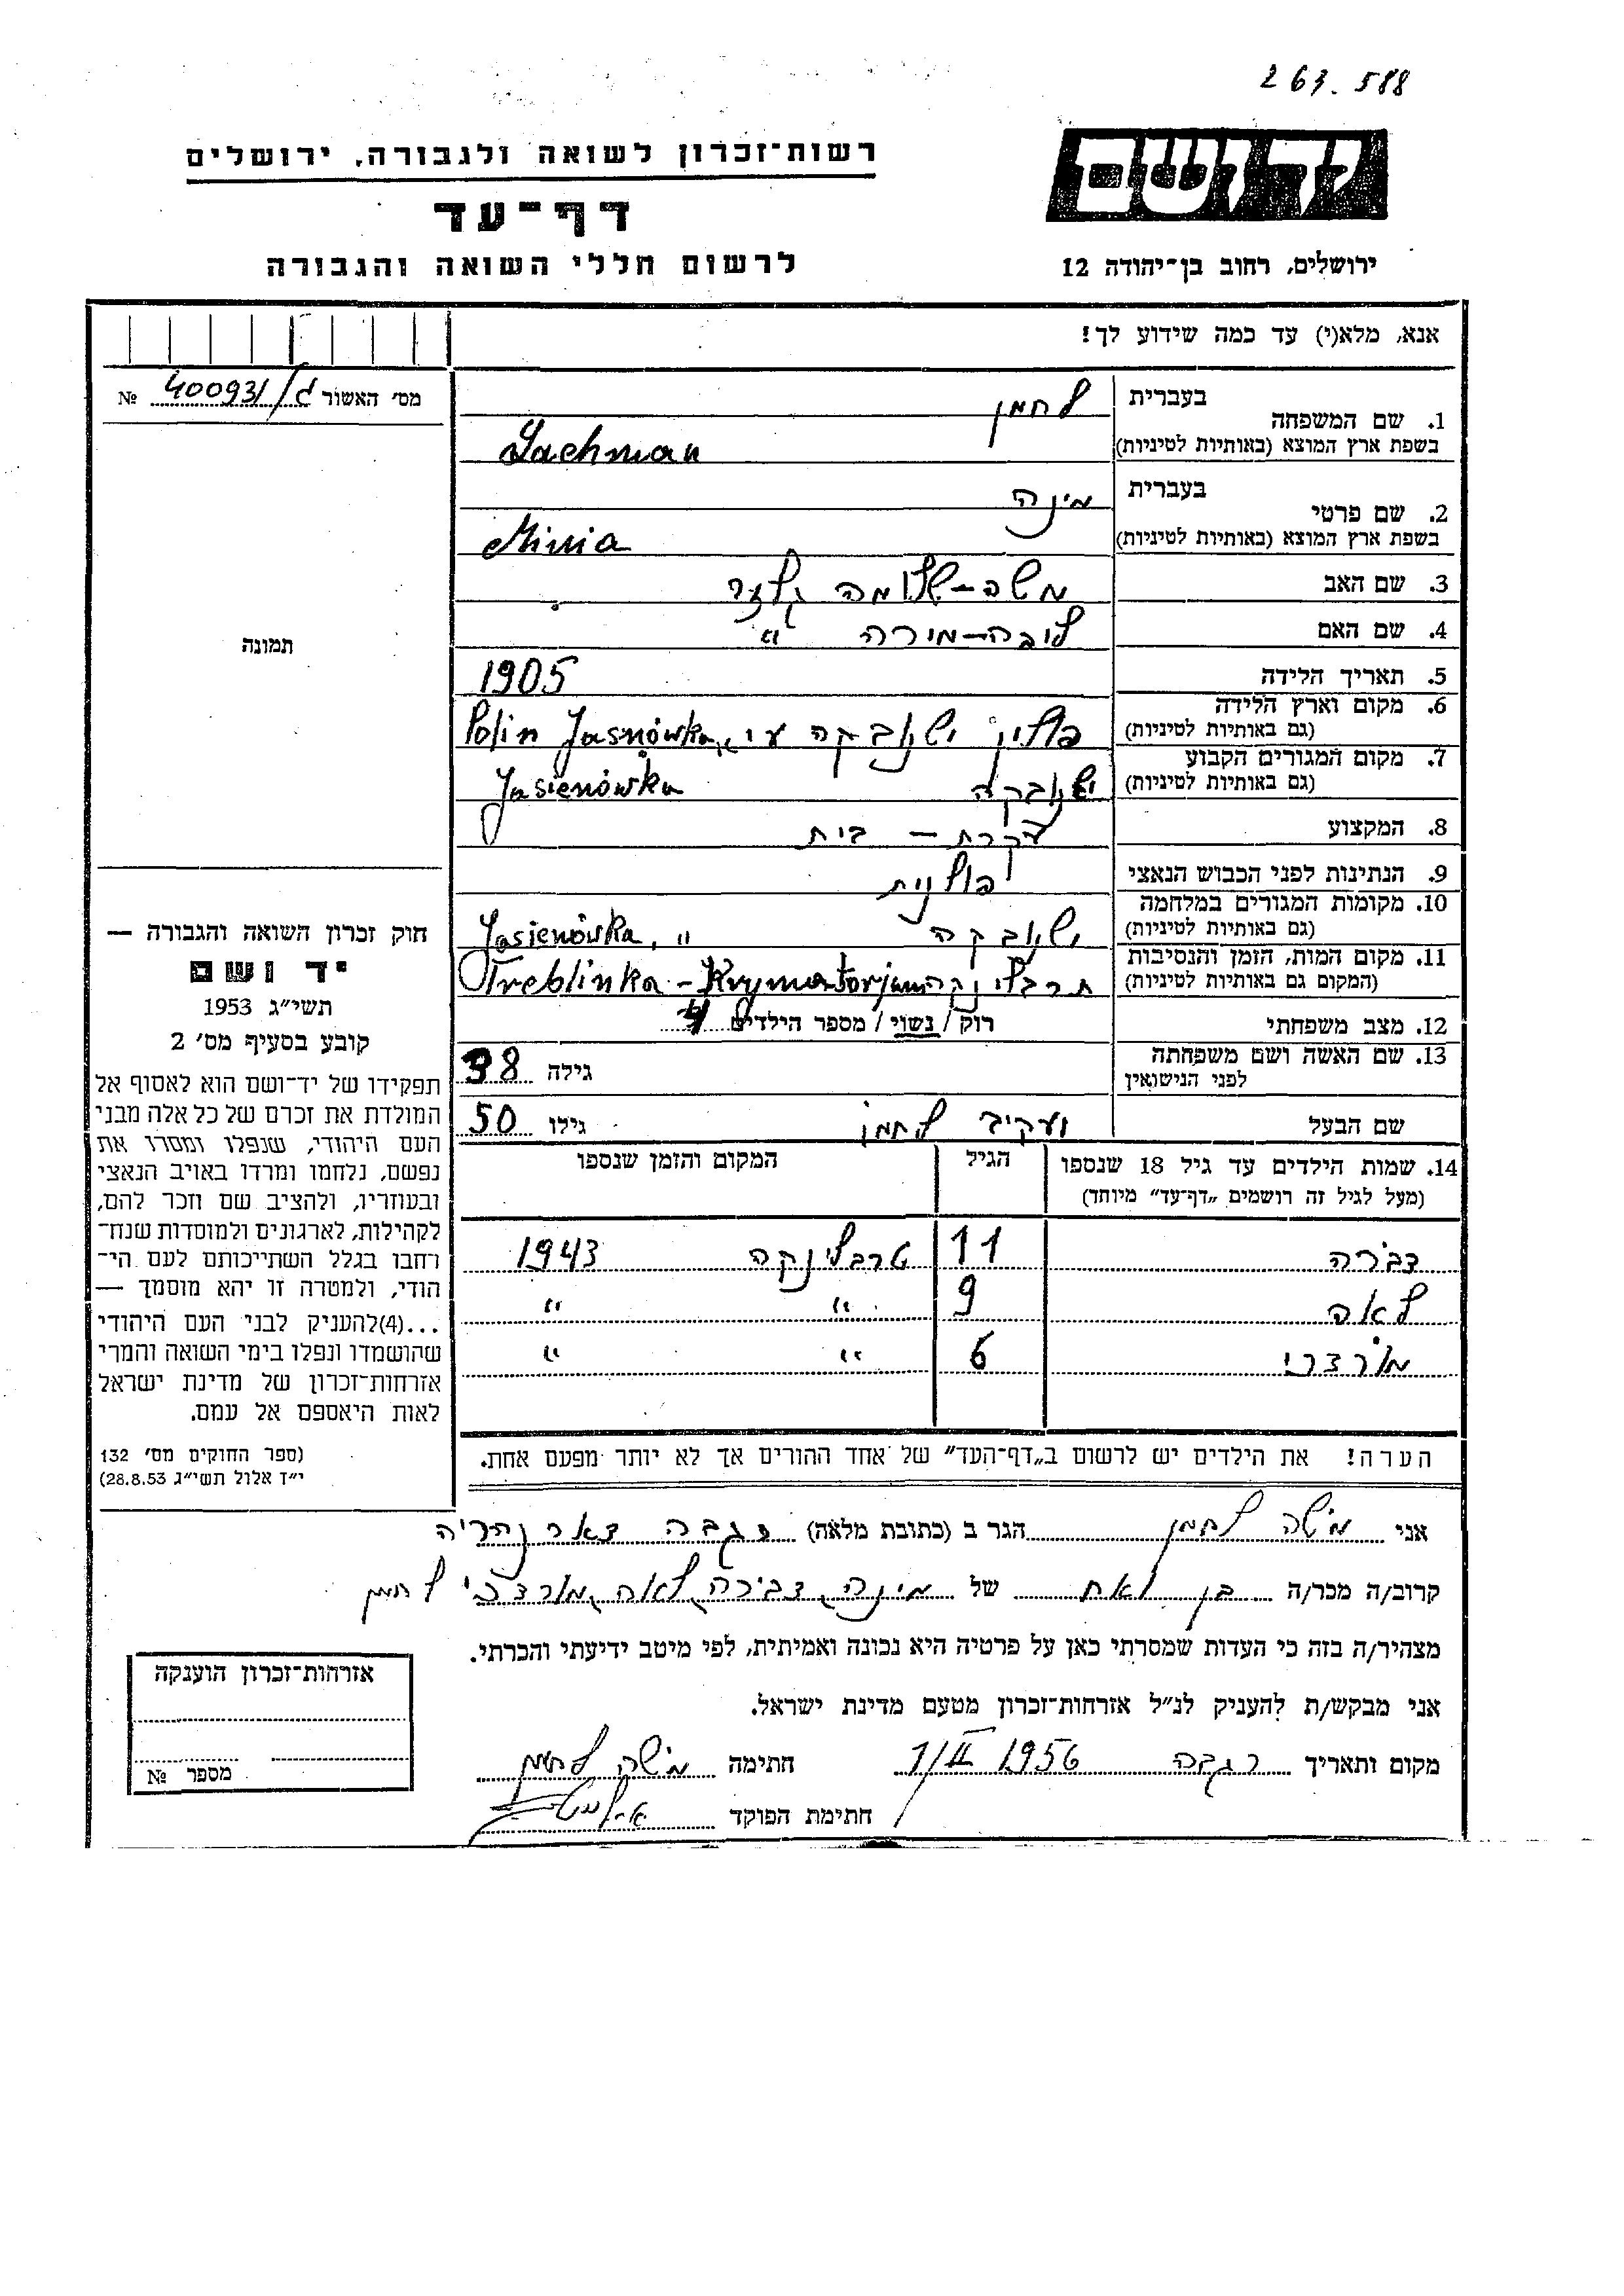 263.588
רשות־זכרון לשואה ולגבורה, ירושלים
דף־עד
לרשום חללי השואה והגבורה
יד ושם
ירושלים, רחוב בן־יהודה 12
אנא, מלא(י) עד כמה שידוע לך!
מס׳ האשור 400931/ג №
תמונה
חוק זכרון השואה והגבורה —
יד ושם
תשי״ג 1953
קובע בסעיף מס׳ 2
תפקידו של יד־ושם הוא לאסוף אל
המולדת את זכרם של כל אלה מבני
העם היהודי, שנפלו ומסרו את
נפשם, נלחמו ומרדו באויב הנאצי
ובעוזריו, ולהציב שם וזכר להם,
לקהילות, לארגונים ולמוסדות שנח־
רחבו בגלל השתייכותם לעם הי־
הודי, ולמטרה זו יהא מוסמך —
...(4)להעניק לבני העם היהודי
שהושמדו ונפלו בימי השואה והמרי
אזרחות־זכרון של מדינת ישראל
לאות היאספם אל עמם.
(ספר החוקים מס׳ 132
י״ד אלול תשי״ג 28.8.53)
1. שם המשפחה בעברית לחמן
בשפת ארץ המוצא (באותיות לטיניות) Lachman
2. שם פרטי בעברית מינה
בשפת ארץ המוצא (באותיות לטיניות) Minia
3. שם האב משה־שלומה
4. שם האם ליבה־מירה ״
5. תאריך הלידה 1905
6. מקום וארץ הלידה (גם באותיות לטיניות) פולין ישנובקה Polin Jasnówka
7. מקום המגורים הקבוע (גם באותיות לטיניות) ישנובקה Jasienówka
8. המקצוע עקרת־בית
9. הנתינות לפני הכבוש הנאצי פולנית
10. מקומות המגורים במלחמה (גם באותיות לטיניות) ישנובקה Jasienówka, ״
11. מקום המות, הזמן והנסיבות (המקום גם באותיות לטיניות) תרבלינקה Treblinka - Krymatorjum
12. מצב משפחתי רוק / נשוי / מספר הילדים 4
13. שם האשה ושם משפחתה לפני הנישואין גילה 38
שם הבעל יעקיב לחמן גילו 50
14. שמות הילדים עד גיל 18 שנספו הגיל המקום והזמן שנספו
(מעל לגיל זה רושמים „דף־עד״ מיוחד)
דבורה 11 טרבלינקה 1943
לאה 9 ״ ״
מורדכי 6 ״ ״
הערה! את הילדים יש לרשום ב„דף־העד״ של אחד ההורים אך לא יותר מפעם אחת.
אני משה לחמן הגר ב (כתובת מלאה) רגבה דאר נהריה
קרוב/ה מכר/ה בן ואח של מינה, דבורה, לאה, מורדכי לחמן
מצהיר/ה בזה כי העדות שמסרתי כאן על פרטיה היא נכונה ואמיתית, לפי מיטב ידיעתי והכרתי.
אני מבקש/ת להעניק לנ״ל אזרחות־זכרון מטעם מדינת ישראל.
מקום ותאריך רגבה 1/II 1956 חתימה משה לחמן
חתימת הפוקד
אזרחות־זכרון הוענקה
מספר №